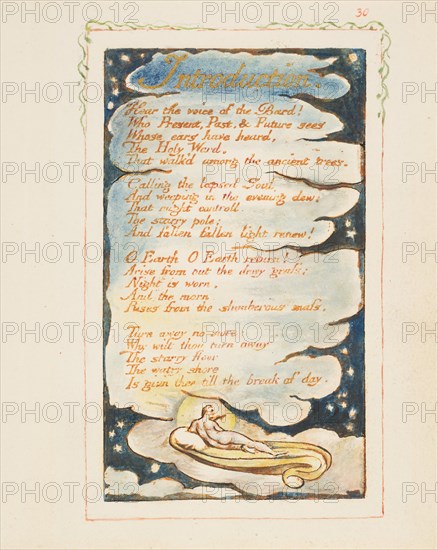 30
Introduction.
Hear the voice of the Bard!
Who Present, Past, & Future sees
Whose ears have heard,
The Holy Word,
That walk'd among the ancient trees.
Calling the lapsed Soul
And weeping in the evening dew:
That might controll.
The starry pole;
And fallen fallen light renew!
O Earth O Earth return!
Arise from out the dewy grass;
Night is worn,
And the morn
Rises from the slumberous mass.
Turn away no more:
Why wilt thou turn away
The starry floor
The watry shore
Is giv'n thee till the break of day.
PHOTO12